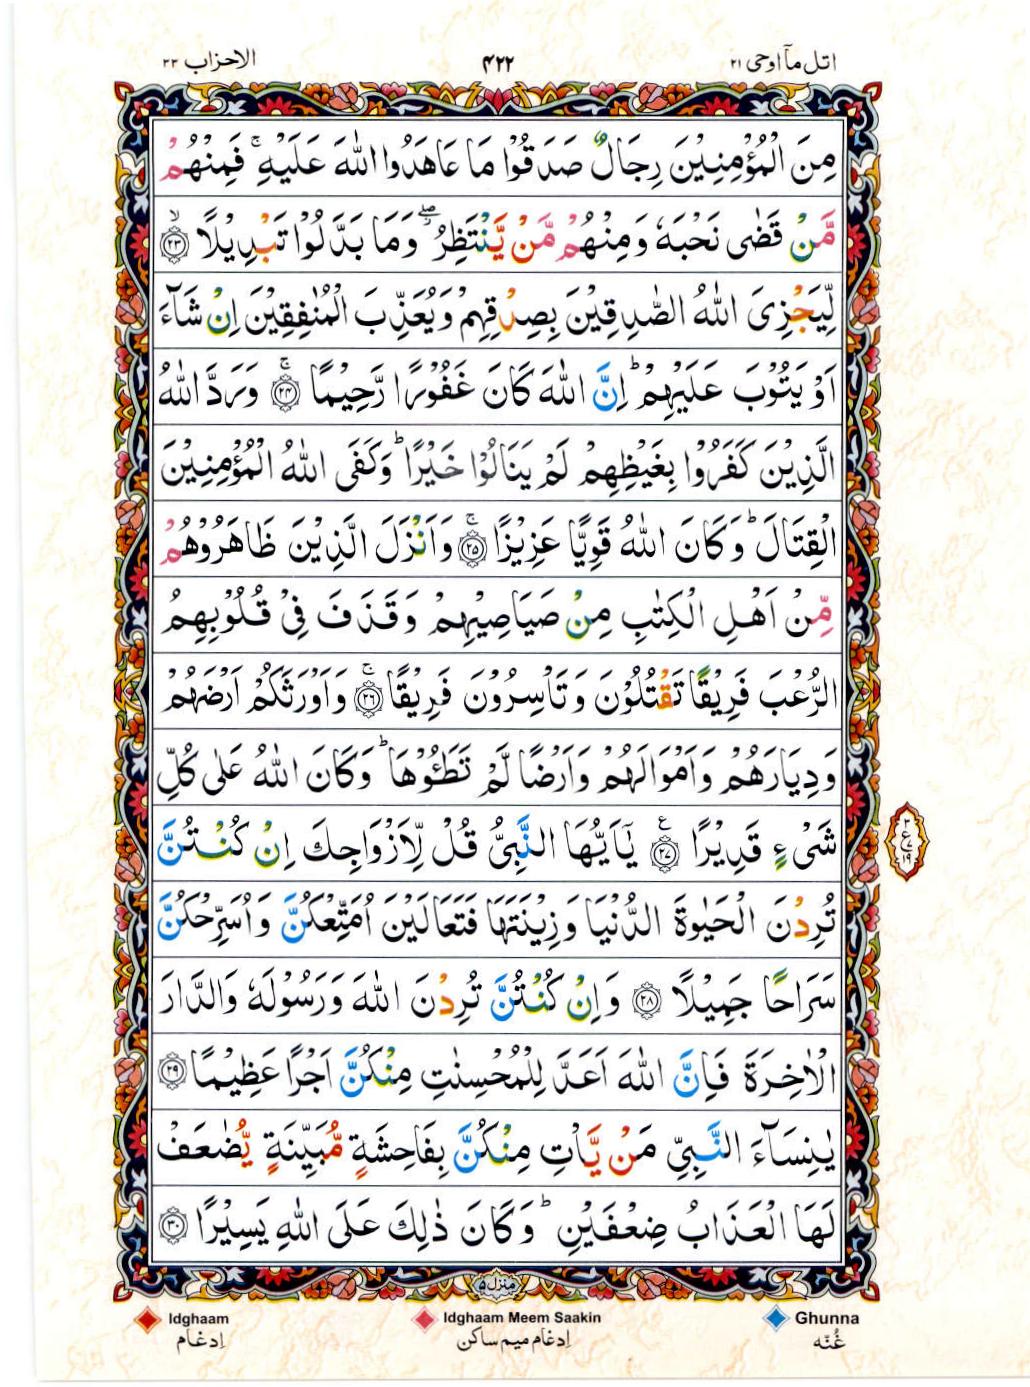 اتل مآ اوحی ۲۱
۴۲۲
الاحزاب ۳۳
مِنَ الْمُؤْمِنِيْنَ رِجَالٌ صَدَقُوْا مَا عَاهَدُوا اللّٰهَ عَلَيْهِ ۚ فَمِنْهُمْ
مَّنْ قَضٰى نَحْبَهٗ وَمِنْهُمْ مَّنْ يَّنْتَظِرُ ۖ وَمَا بَدَّلُوْا تَبْدِيْلًا ۙ ﴿۲۳﴾
لِّيَجْزِىَ اللّٰهُ الصّٰدِقِيْنَ بِصِدْقِهِمْ وَيُعَذِّبَ الْمُنٰفِقِيْنَ اِنْ شَآءَ
اَوْ يَتُوْبَ عَلَيْهِمْ ؕ اِنَّ اللّٰهَ كَانَ غَفُوْرًا رَّحِيْمًا ۚ ﴿۲۴﴾ وَرَدَّ اللّٰهُ
الَّذِيْنَ كَفَرُوْا بِغَيْظِهِمْ لَمْ يَنَالُوْا خَيْرًا ؕ وَكَفَى اللّٰهُ الْمُؤْمِنِيْنَ
الْقِتَالَ ؕ وَكَانَ اللّٰهُ قَوِيًّا عَزِيْزًا ۚ ﴿۲۵﴾ وَاَنْزَلَ الَّذِيْنَ ظَاهَرُوْهُمْ
مِّنْ اَهْلِ الْكِتٰبِ مِنْ صَيَاصِيْهِمْ وَقَذَفَ فِىْ قُلُوْبِهِمُ
الرُّعْبَ فَرِيْقًا تَقْتُلُوْنَ وَتَاْسِرُوْنَ فَرِيْقًا ۚ ﴿۲۶﴾ وَاَوْرَثَكُمْ اَرْضَهُمْ
وَدِيَارَهُمْ وَاَمْوَالَهُمْ وَاَرْضًا لَّمْ تَطَـُٔوْهَا ؕ وَكَانَ اللّٰهُ عَلٰى كُلِّ
شَىْءٍ قَدِيْرًا ﴿۲۷﴾ ع يٰۤاَيُّهَا النَّبِىُّ قُلْ لِّاَزْوَاجِكَ اِنْ كُنْتُنَّ
تُرِدْنَ الْحَيٰوةَ الدُّنْيَا وَزِيْنَتَهَا فَتَعَالَيْنَ اُمَتِّعْكُنَّ وَاُسَرِّحْكُنَّ
سَرَاحًا جَمِيْلًا ﴿۲۸﴾ وَاِنْ كُنْتُنَّ تُرِدْنَ اللّٰهَ وَرَسُوْلَهٗ وَالدَّارَ
الْاٰخِرَةَ فَاِنَّ اللّٰهَ اَعَدَّ لِلْمُحْسِنٰتِ مِنْكُنَّ اَجْرًا عَظِيْمًا ﴿۲۹﴾
يٰنِسَآءَ النَّبِىِّ مَنْ يَّاْتِ مِنْكُنَّ بِفَاحِشَةٍ مُّبَيِّنَةٍ يُّضٰعَفْ
لَهَا الْعَذَابُ ضِعْفَيْنِ ؕ وَكَانَ ذٰلِكَ عَلَى اللّٰهِ يَسِيْرًا ﴿۳۰﴾
۲
ع ۷
۱۹
منزل ۵
Ghunna
غُنّه
Idghaam Meem Saakin
اِدغام میم ساکن
Idghaam
اِدغام